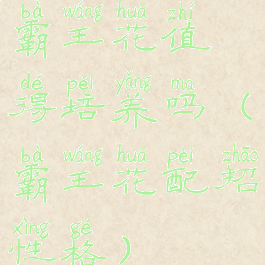 bà wáng huā zhí
霸王花值
de péi yǎng ma
得培养吗（
bà wáng huā pèi zhāo
霸王花配招
xìng gé
性格）